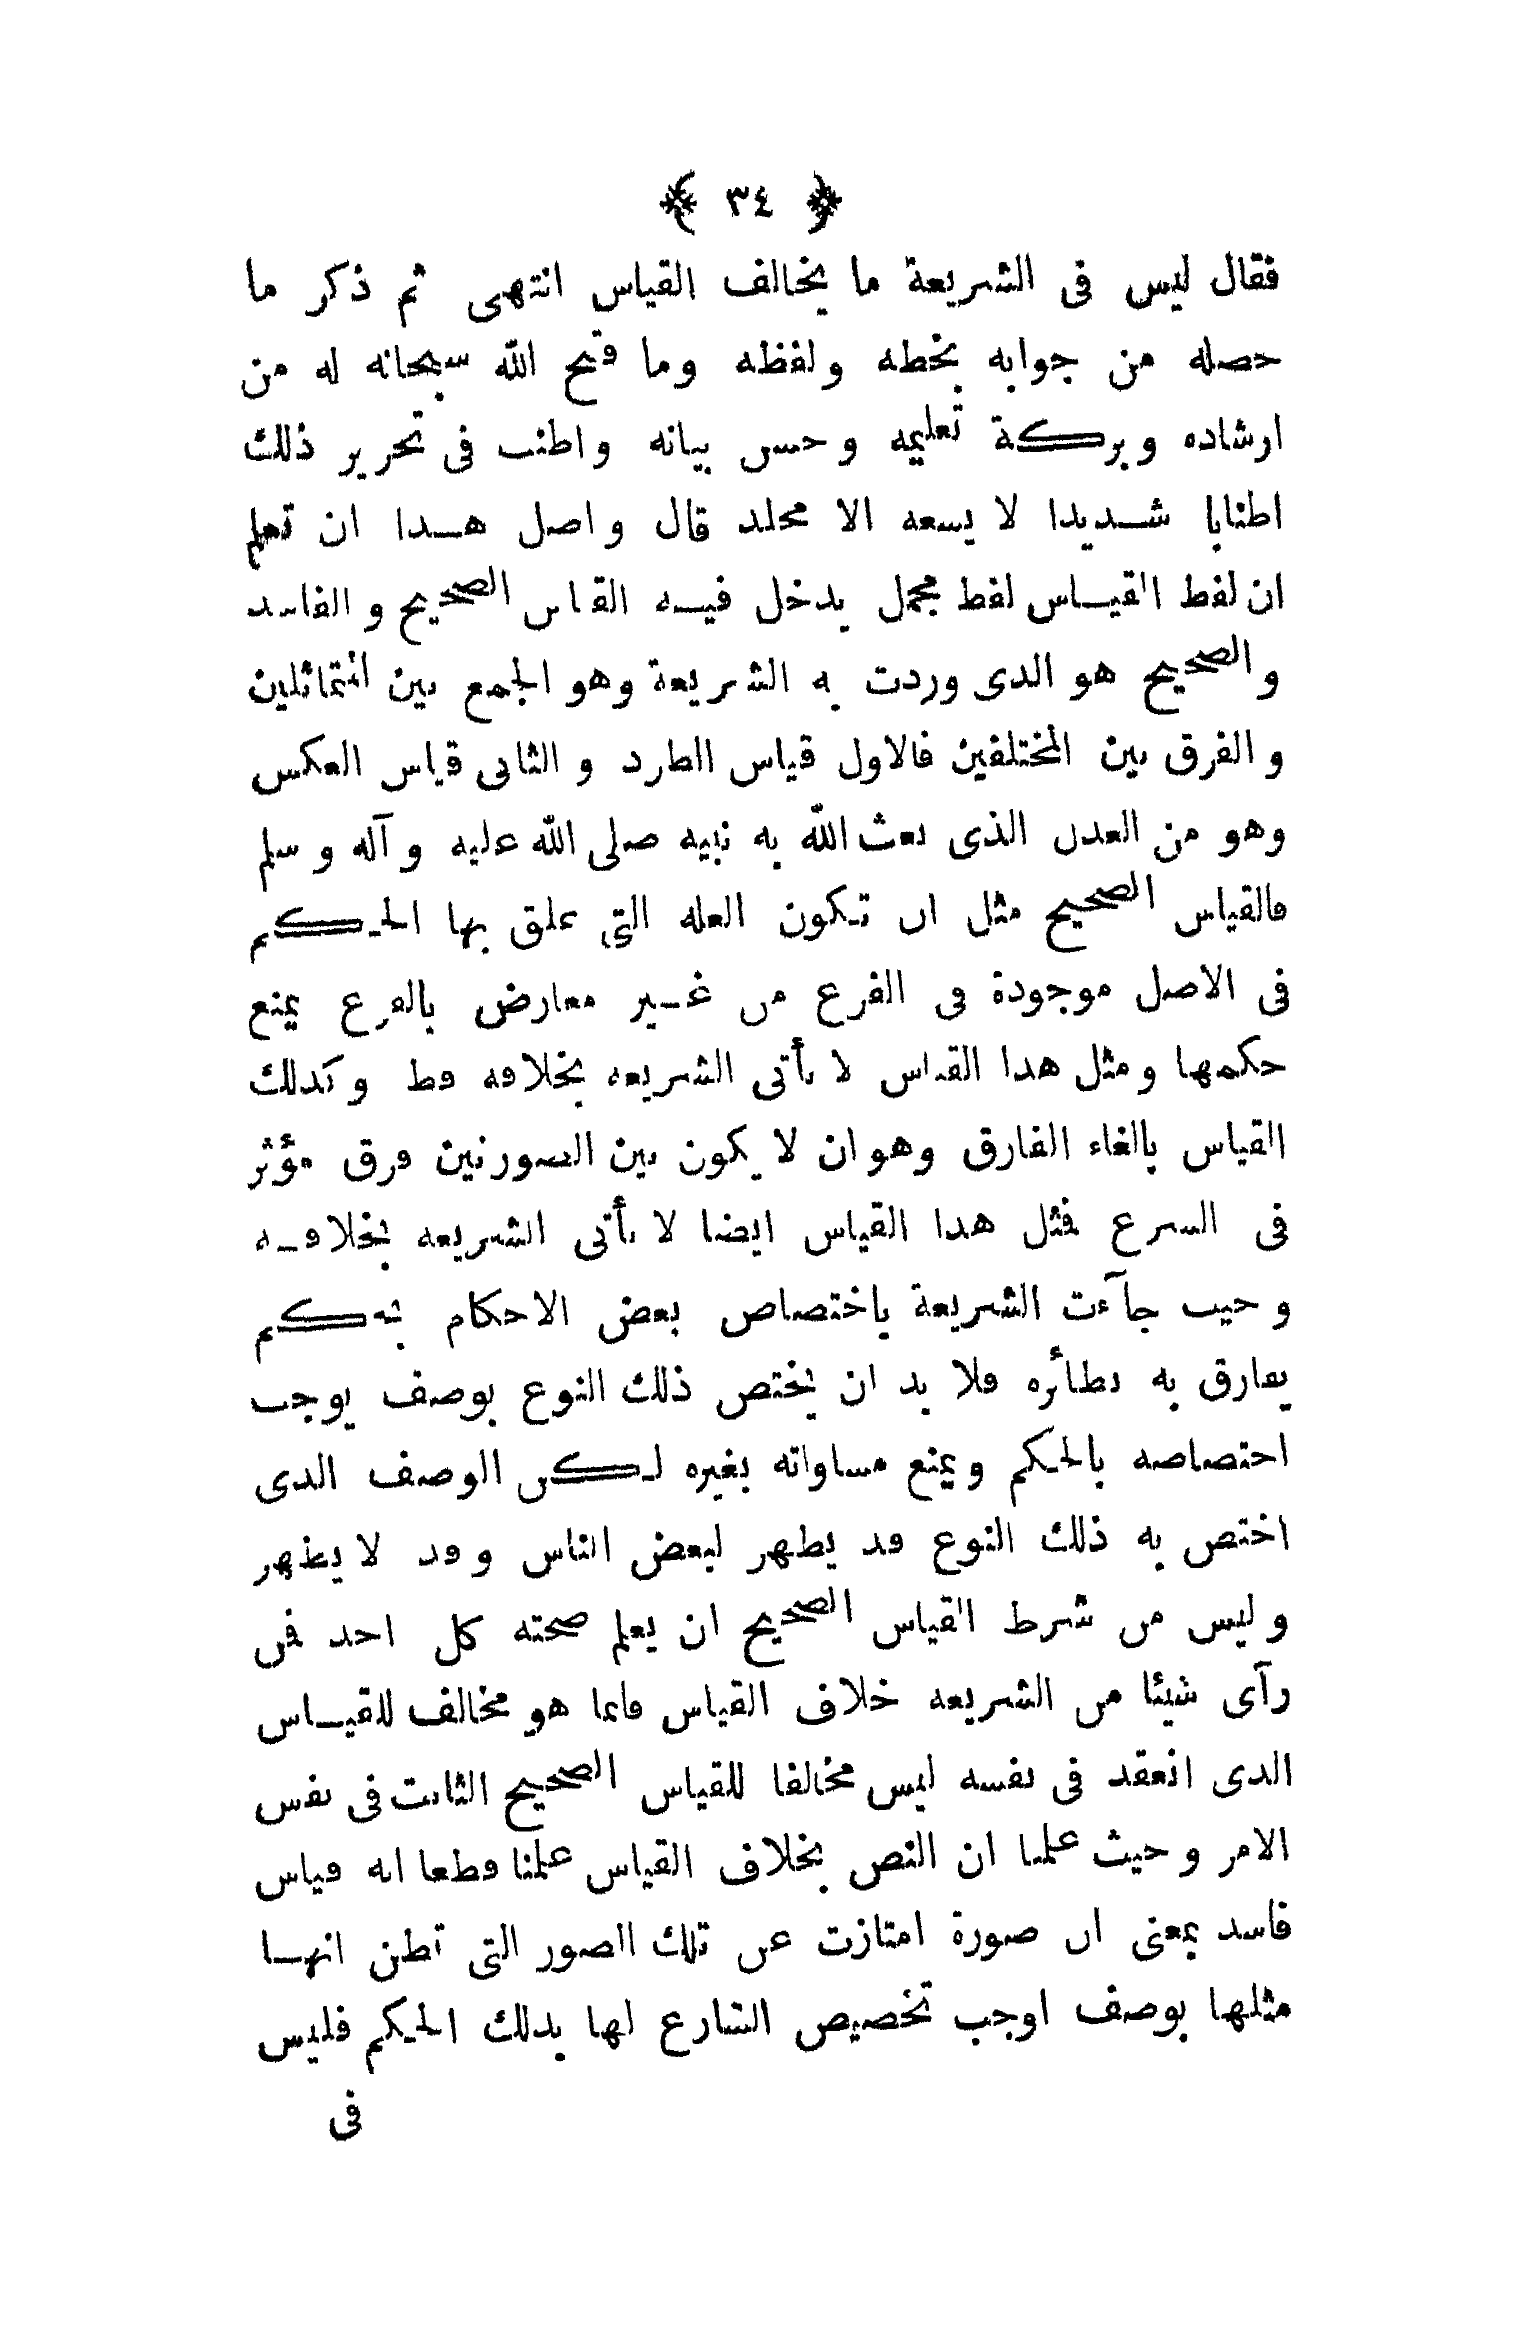 ﴿ ٣٤ ﴾
فقال ليس فى الشريعة ما يخالف القياس انتهى ثم ذكر ما
حصله من جوابه بخطه ولفظه وما فتح الله سبحانه له من
ارشاده وبركة تعليمه وحسن بيانه واطنب فى تحرير ذلك
اطنابا شديدا لا يسعه الا مجلد قال واصل هذا ان تعلم
ان لفظ القياس لفظ مجمل يدخل فيه القياس الصحيح والفاسد
والصحيح هو الذى وردت به الشريعة وهو الجمع بين المتماثلين
والفرق بين المختلفين فالاول قياس الطرد والثانى قياس العكس
وهو من العدل الذى بعث الله به نبيه صلى الله عليه وآله وسلم
فالقياس الصحيح مثل ان تكون العلة التى علق بها الحكم
فى الاصل موجودة فى الفرع من غير معارض بالفرع يمنع
حكمها ومثل هذا القياس لا يأتى الشريعة بخلافه قط وكذلك
القياس بالغاء الفارق وهو ان لا يكون بين الصورتين فرق مؤثر
فى الشرع فمثل هذا القياس ايضا لا يأتى الشريعة بخلافه
وحيث جآءت الشريعة باختصاص بعض الاحكام بحكم
يفارق به نظائره فلا بد ان يختص ذلك النوع بوصف يوجب
اختصاصه بالحكم ويمنع مساواته بغيره لكن الوصف الذى
اختص به ذلك النوع قد يظهر لبعض الناس وقد لا يظهر
وليس من شرط القياس الصحيح ان يعلم صحته كل احد فمن
رآى شيئا من الشريعة خلاف القياس فانما هو مخالف للقياس
الذى انعقد فى نفسه ليس مخالفا للقياس الصحيح الثابت فى نفس
الامر وحيث علمنا ان النص بخلاف القياس علمنا قطعا انه قياس
فاسد بمعنى ان صورة امتازت عن تلك الصور التى تظن انها
مثلها بوصف اوجب تخصيص الشارع لها بذلك الحكم فليس
فى